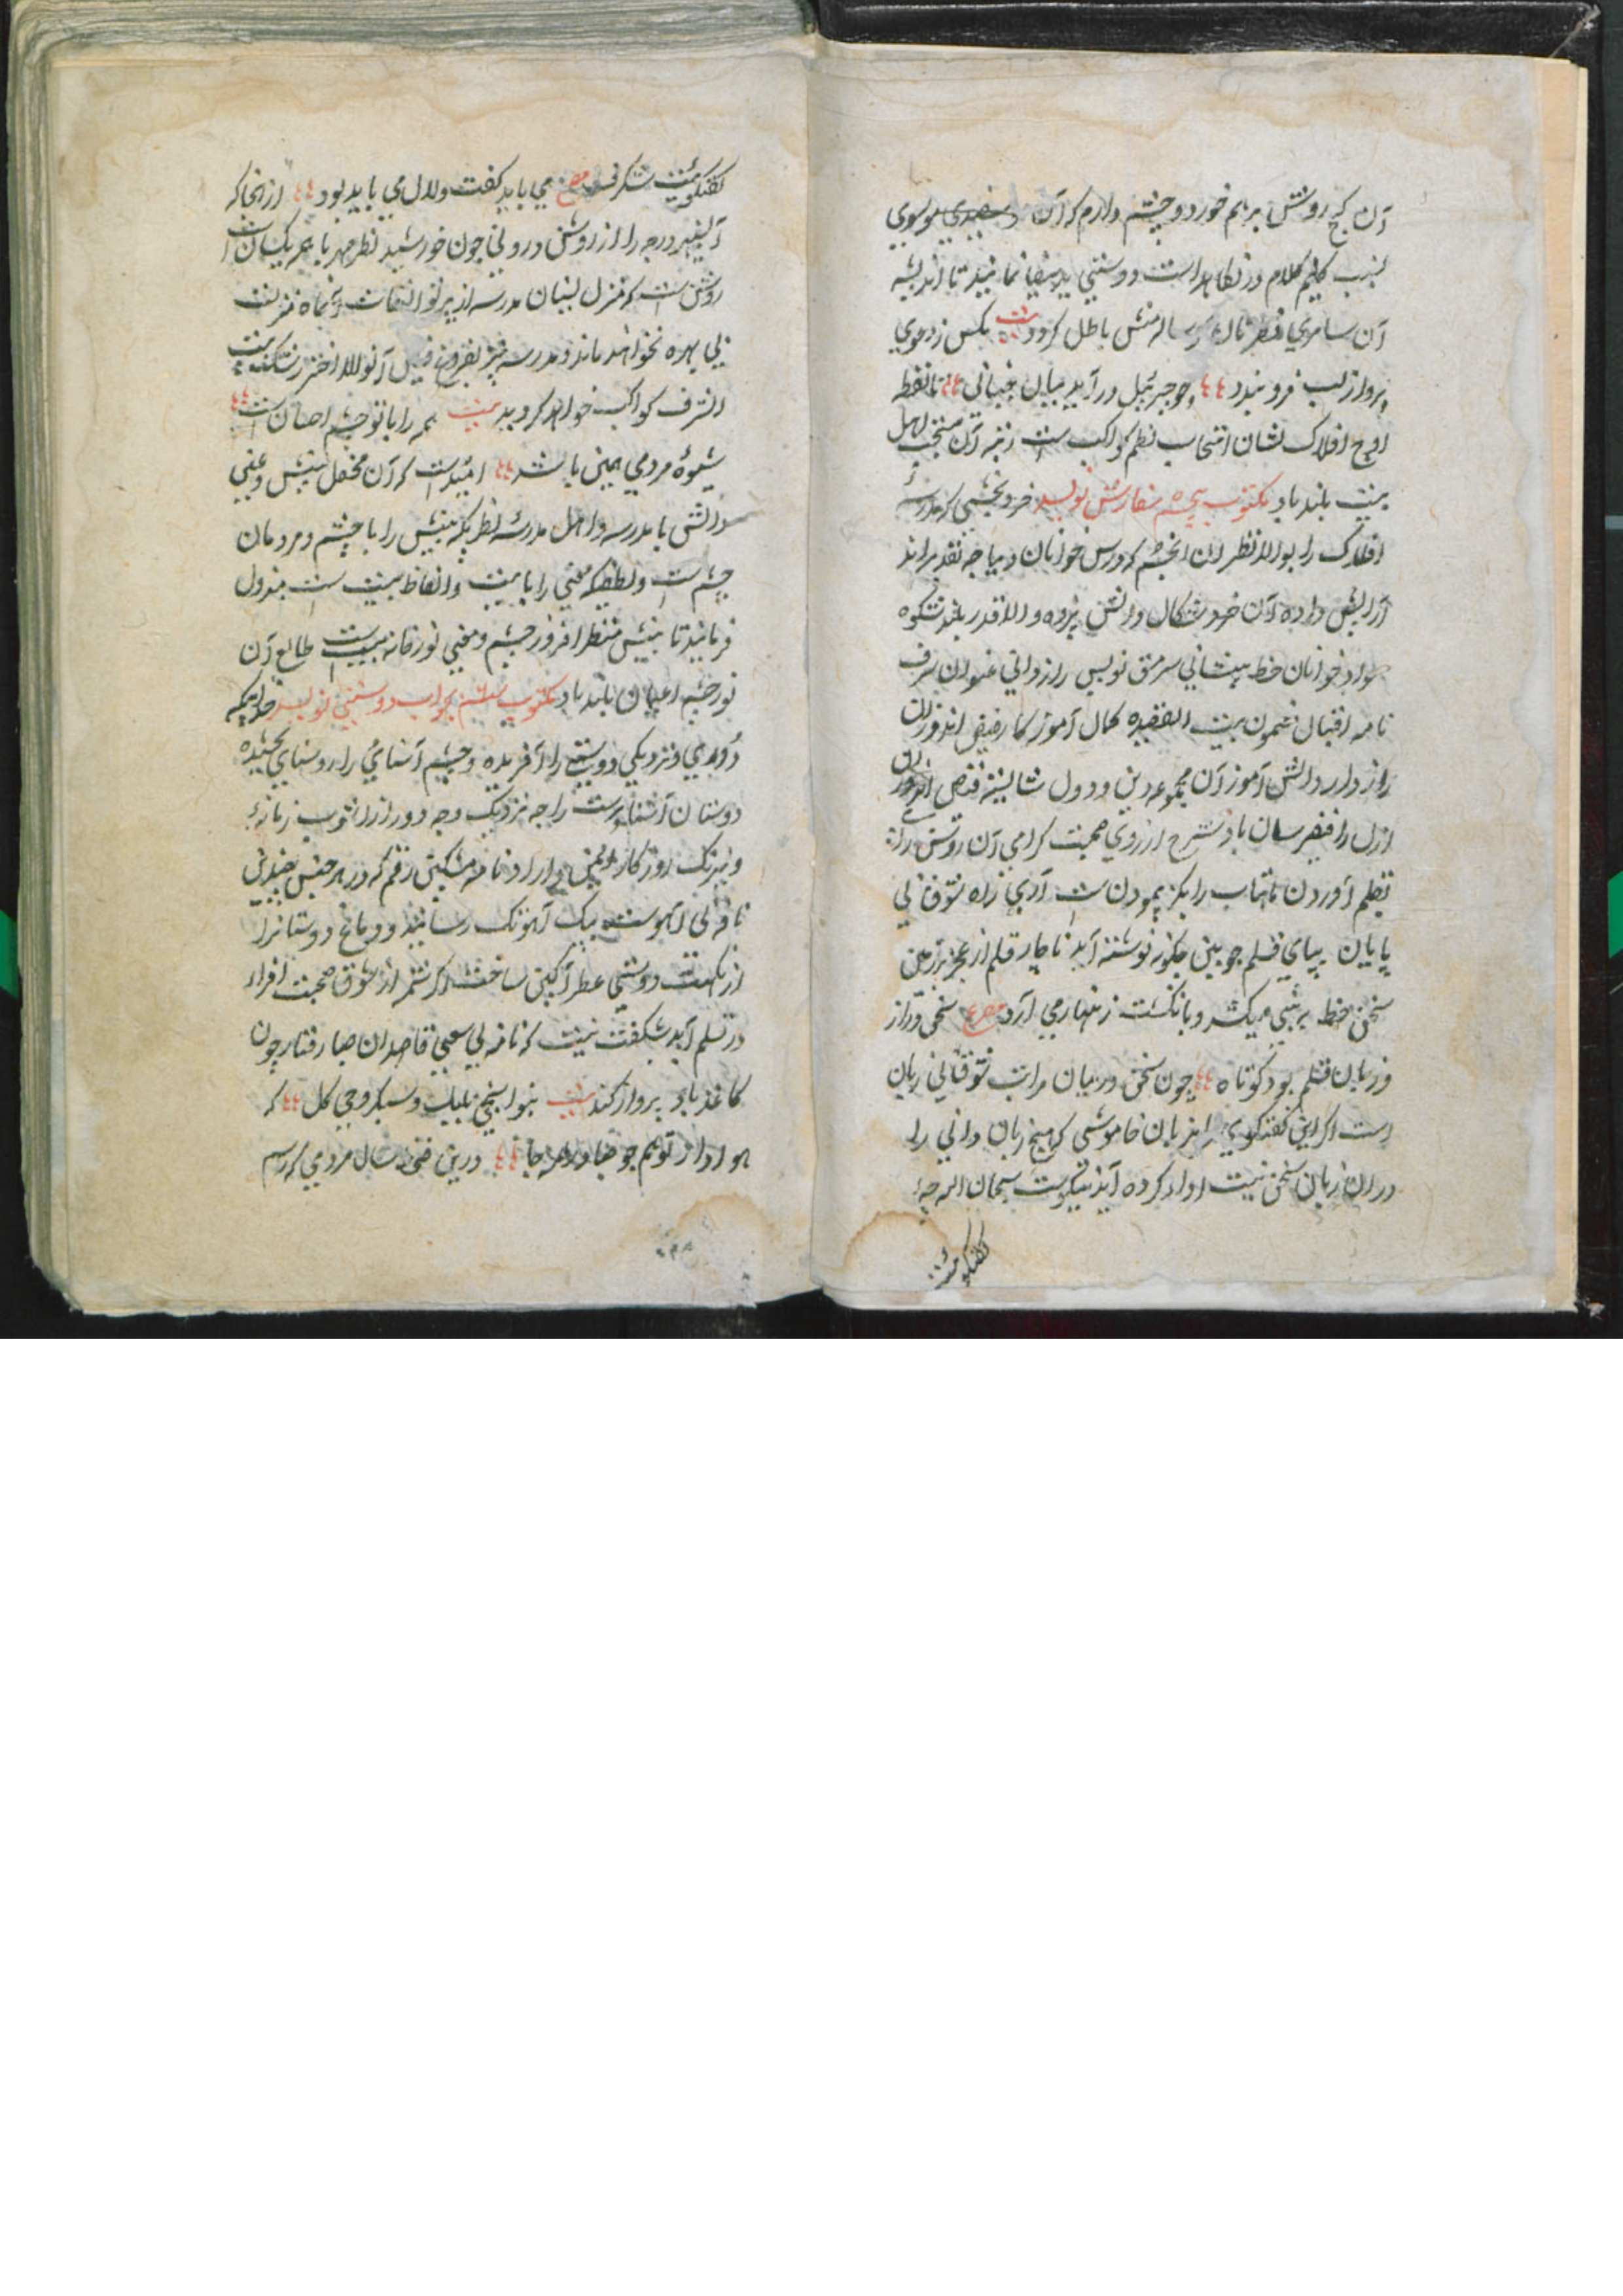 آن کج روشش برهم خورد و چشم دارم که آن موسوی
نسب کلیم کلام در نکاهداشت دوستی ید بیضا نمایند تا اندیشه
آن سامری باطل کردد بیت مکس ز دعوی
پرواز لب فرو بندد چو جبرئیل درآید میان تا نقطه
اوج افلاک نشان انتخاب نظم کواکب است رتبه آن منتخب اهل
بیت بلند باد مکتوب پنجم سفارش نویسد خرد بخشی که مدرسه
افلاک را بوالا نظران انجم که درس خوانان دیباجه تقدیراند
آرایش داده آن خرد سکال دانش پژوه والا قدر بلند شکوه
سواد خوانان خط پیشانی سرمشق نویس راز دانی عنوان شرف
نامه اقبال مضمون بیت القصیده کمال آموز کار فیض اندوزان
راز دار دانش آموز آن مجموعه دین و دول شایسته
ازل را فیض رسان باد شرح آرزوی صحبت کرامی آن روشن رای
بقلم آوردن ماهتاب را بکز پیمودن است آری راه شوق بی
پایان بپای قلم چوبین چکونه نوشته آید ناچار قلم از عجز بر زمین
سخن خط بر بینی میکشد و بانکشت زنهار می آرد مصرع سخن دراز
و زبان قلم بود کوتاه چون سخن در بیان مراتب شوق بی زبان
است اکر این کفتکوی از زبان خاموشی که هیچ زبان دانی را
در ان زبان سخن نیست ادا کرده آید نیکوست سبحان الله چه
کفتکوئیست
کفتکوئیست شکرف مصرع می باید کفت و لال می باید بود از انجا که
آن سپهر درجه را از روشن درونی چون خورشید نظر مهر با همه یکسان است
روشن است که منزل نشینان مدرسه از پرتو التفات آن ماه منزلت
بی بهره نخواهند ماند و مدرسه نیز بفروغ فیض آن والا اختر رشک بیت
الشرف کواکب خواهد کردید بیت همه را با تو چشم احسان است
شیوه مردمی همین باشد امید است که آن محفل بینش و معنی
دانش با مدرسه و اهل مدرسه نظریکه بینش را با چشم و مردمان
چشم است و لطفیکه معنی را با بیت و الفاظ بیت است مبذول
فرمایند تا بینش منظر افروز چشم و معنی نور خانه بیت است طالع آن
نور چشم اعیان بلند باد مکتوب ششم بجواب دوستی نویسد خدائیکه
دوری و نزدیکی دوستی را آفریده و چشم آشنائی را روشنائی بخشیده
دوستان آشنا پرست را چه نزدیک و چه دور از آشوب زمانه
و نیرنک روزکار ایمن دارد نامه مشکین رقم که در هر جنس
نافه بی آهوست بیک آهوتک رسانید و دماغ دوستانرا
از نکهت دوستی عطر آکین ساخت اکر شمه از شوق صحبت افزاء
در قلم آید شکفت نیست که نامه بی سعی قاصدان صبا رفتار چون
کاغذ باد پرواز کند بیت بنوا سنجی بلبل و سبکروحی کل که
هوادار توهم چو صبا در همه جا درین فن مردمی که رسم